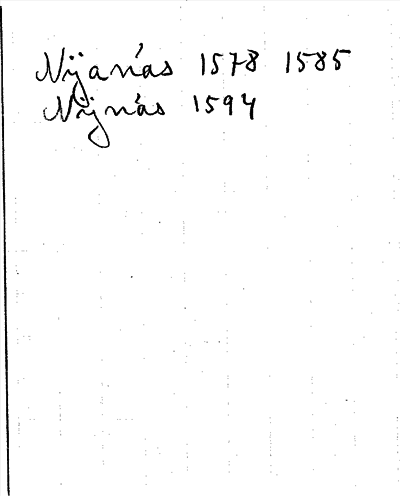 Nijanäs 1578 1585
Nijnäs 1594